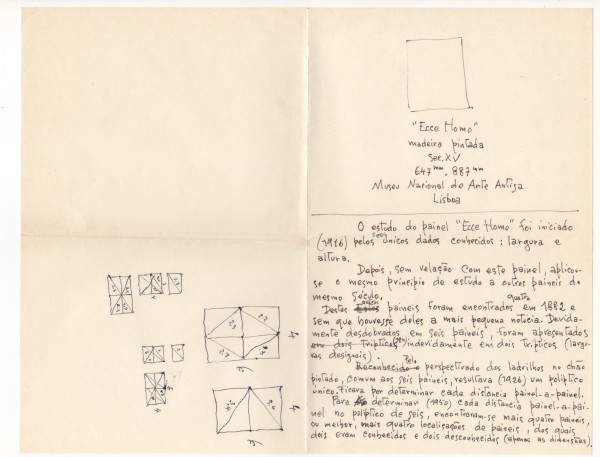 "Ecce Homo"
madeira pintada
Sec. XV
647mm. 887mm
Museu Nacional de Arte Antiga
Lisboa
O estudo do painel "Ecce Homo" foi iniciado
(1916) pelos seus únicos dados conhecidos: largura e
altura.
Depois, sem relação com este painel, aplicou-
se o mesmo principio de estudo a outros paineis do
mesmo século.
Destes outros paineis quatro foram encontrados em 1882 e
sem que houvesse deles a mais pequena noticia. Devida-
mente desdobrados em seis paineis, foram apresentados
indevidamente em dois tripticos (largu-
ras desiguais).
Reconhecido Pelo perspectivado dos ladrilhos no chão
pintado, comum aos seis paineis, resultava (1926) um poliptico
único. Ficava por determinar cada distancia painel-a-painel.
Para determinar (1950) cada distancia painel-a-pai-
nel no poliptico de seis, encontraram-se mais quatro paineis,
ou melhor, mais quatro localisações de paineis, dos quais
dois eram conhecidos e dois desconhecidos (apenas as dimensões).